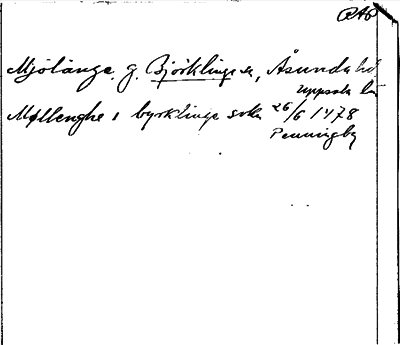 RAP
Mjölänge, g. Björklinge sn, Åsunda hd
Uppsala län
Møllenghe i byrklinge sokn 26/6 1478
Penningby